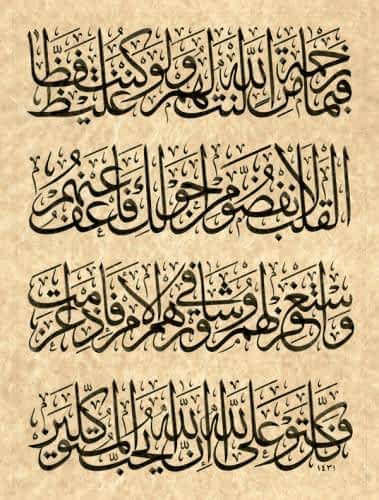 فبما رحمة من الله لنت لهم ولو كنت فظا غليظ
القلب لانفضوا من حولك فاعف عنهم
واستغفر لهم وشاورهم في الأمر فإذا عزمت
فتوكل على الله إن الله يحب المتوكلين ١٤٣١